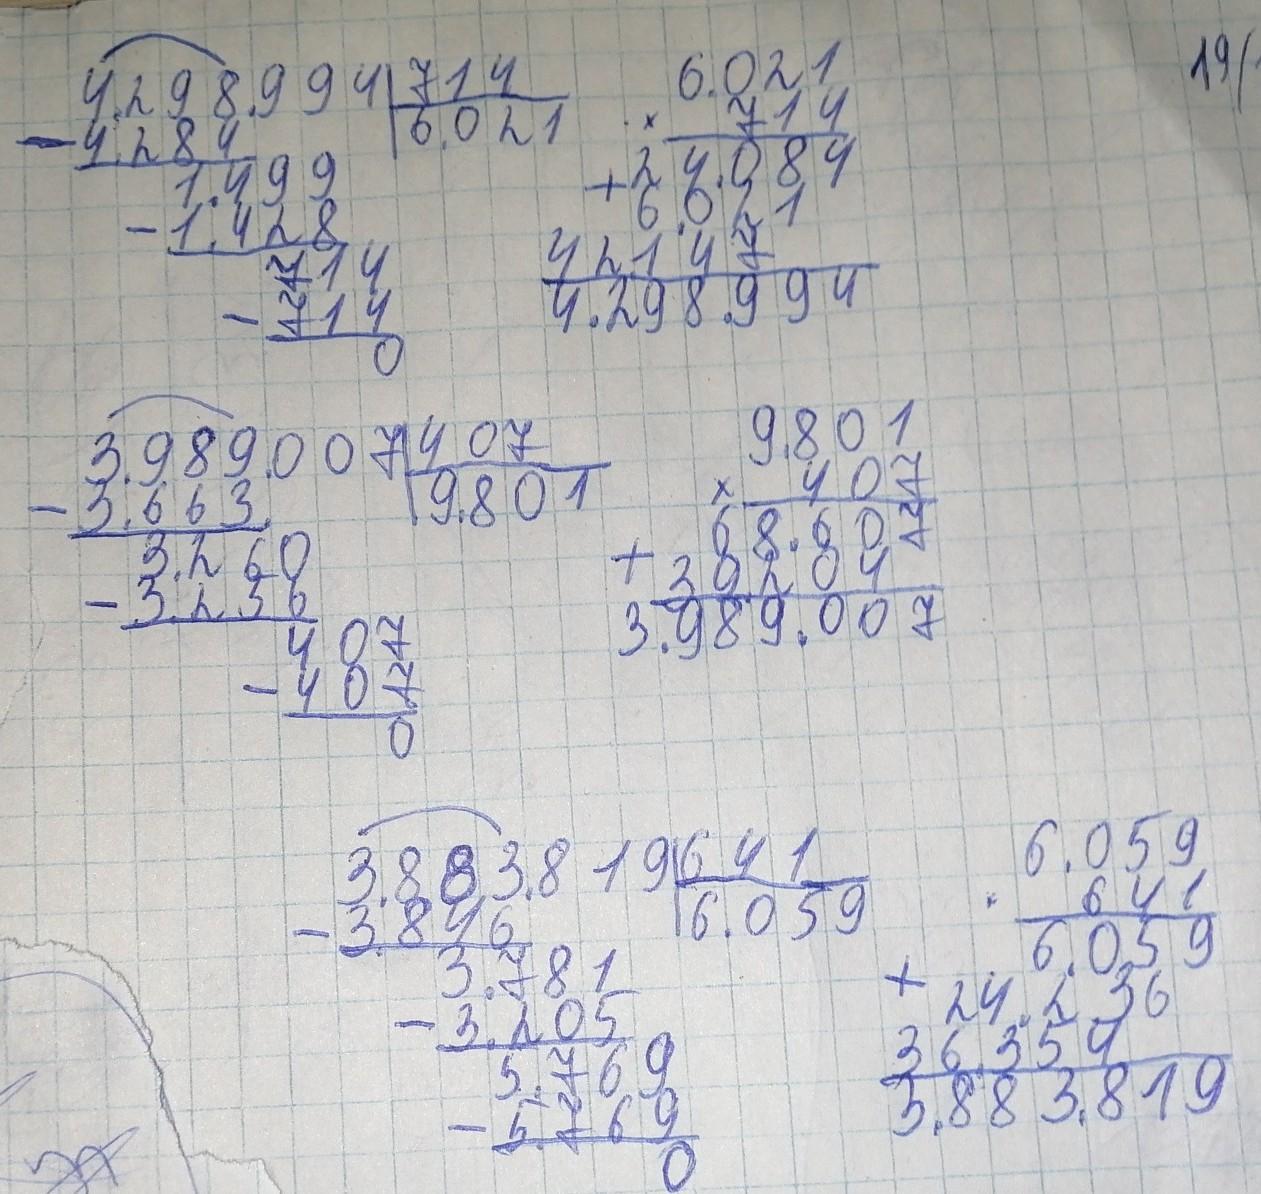 4.298.994 714 6.021 19(
- 4.284 6.021 × 714
1.499 24.084
- 1.428 + 6.021
714 42147
- 714 4.298.994
0
3.989.007 407 9.801
- 3.663. 9.801 × 407
3.260 68.607
- 3.236 + 39204
407 3.989.007
- 407
0
3.883.819 641 6.059
- 3.846 6.059 · 641
3.781 6.059
- 3.205 + 24.236
5.769 36354
- 5.769 3.883.819
0